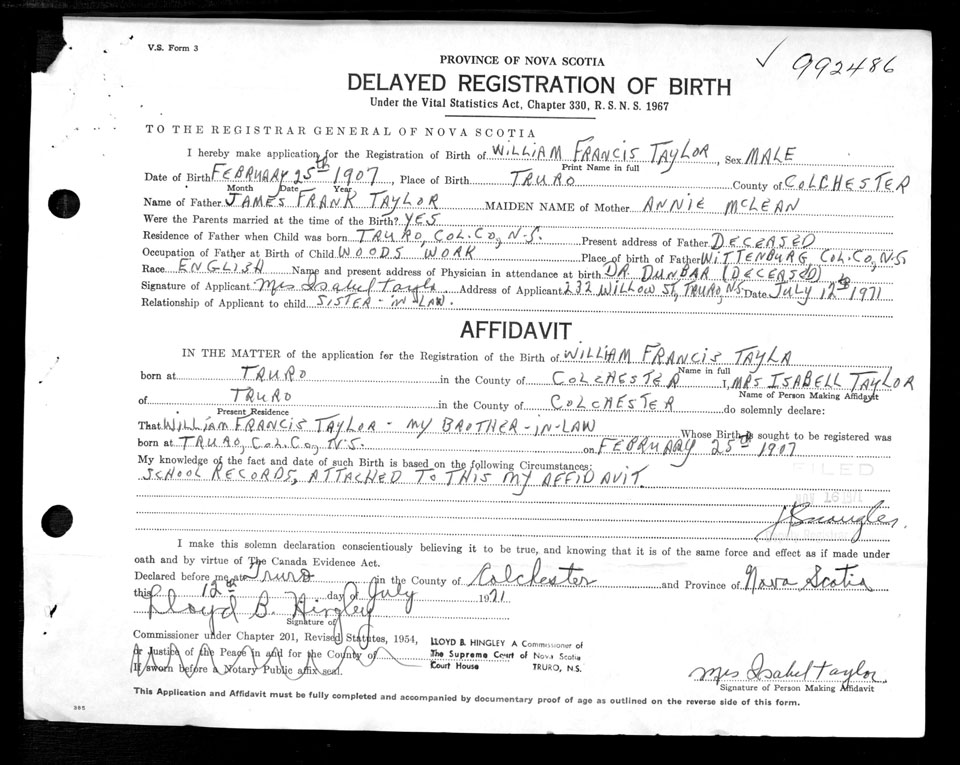 V.S. Form 3
PROVINCE OF NOVA SCOTIA
✓ 992486
DELAYED REGISTRATION OF BIRTH
Under the Vital Statistics Act, Chapter 330, R. S. N. S. 1967
TO THE REGISTRAR GENERAL OF NOVA SCOTIA
I hereby make application for the Registration of Birth of WILLIAM FRANCIS TAYLOR, Sex MALE
Print Name in full
Date of Birth FEBRUARY 25th 1907, Place of Birth TRURO County of COLCHESTER
Month Date Year
Name of Father JAMES FRANK TAYLOR MAIDEN NAME of Mother ANNIE McLEAN
Were the Parents married at the time of the Birth? YES
Residence of Father when Child was born TRURO, COL. CO, N-S. Present address of Father DECEASED
Occupation of Father at Birth of Child WOODS WORK Place of birth of Father WITTENBURG, COL. CO, N-S.
Race ENGLISH Name and present address of Physician in attendance at birth DR DUNBAR (DECEASED)
Signature of Applicant Mrs Isabel Taylor Address of Applicant 232 WILLOW ST, TRURO, NS Date July 12th 1971
Relationship of Applicant to child SISTER-IN-LAW.
AFFIDAVIT
IN THE MATTER of the application for the Registration of the Birth of WILLIAM FRANCIS TAYLA
Name in full
born at TRURO in the County of COLCHESTER I, MRS ISABELL TAYLOR
Name of Person Making Affidavit
of TRURO in the County of COLCHESTER do solemnly declare:
Present Residence
That WILLIAM FRANCIS TAYLOR - MY BROTHER-IN-LAW Whose Birth is sought to be registered was
born at TRURO, COL. CO, N-S. on FEBRUARY 25th 1907
My knowledge of the fact and date of such Birth is based on the following Circumstances:
SCHOOL RECORDS, ATTACHED TO THIS MY AFFIDAVIT.
FILED
16
I make this solemn declaration conscientiously believing it to be true, and knowing that it is of the same force and effect as if made under
oath and by virtue of The Canada Evidence Act.
Declared before me at Truro in the County of Colchester and Province of Nova Scotia
this 12th day of July 1971
Lloyd B. Hingley
Signature of
Commissioner under Chapter 201, Revised Statutes, 1954,
or Justice of the Peace in and for the County of
If sworn before a Notary Public affix seal.
LLOYD B. HINGLEY A Commissioner of
The Supreme Court of Nova Scotia
Court House TRURO, N.S.
Mrs Isabel Taylor
Signature of Person Making Affidavit
This Application and Affidavit must be fully completed and accompanied by documentary proof of age as outlined on the reverse side of this form.
305